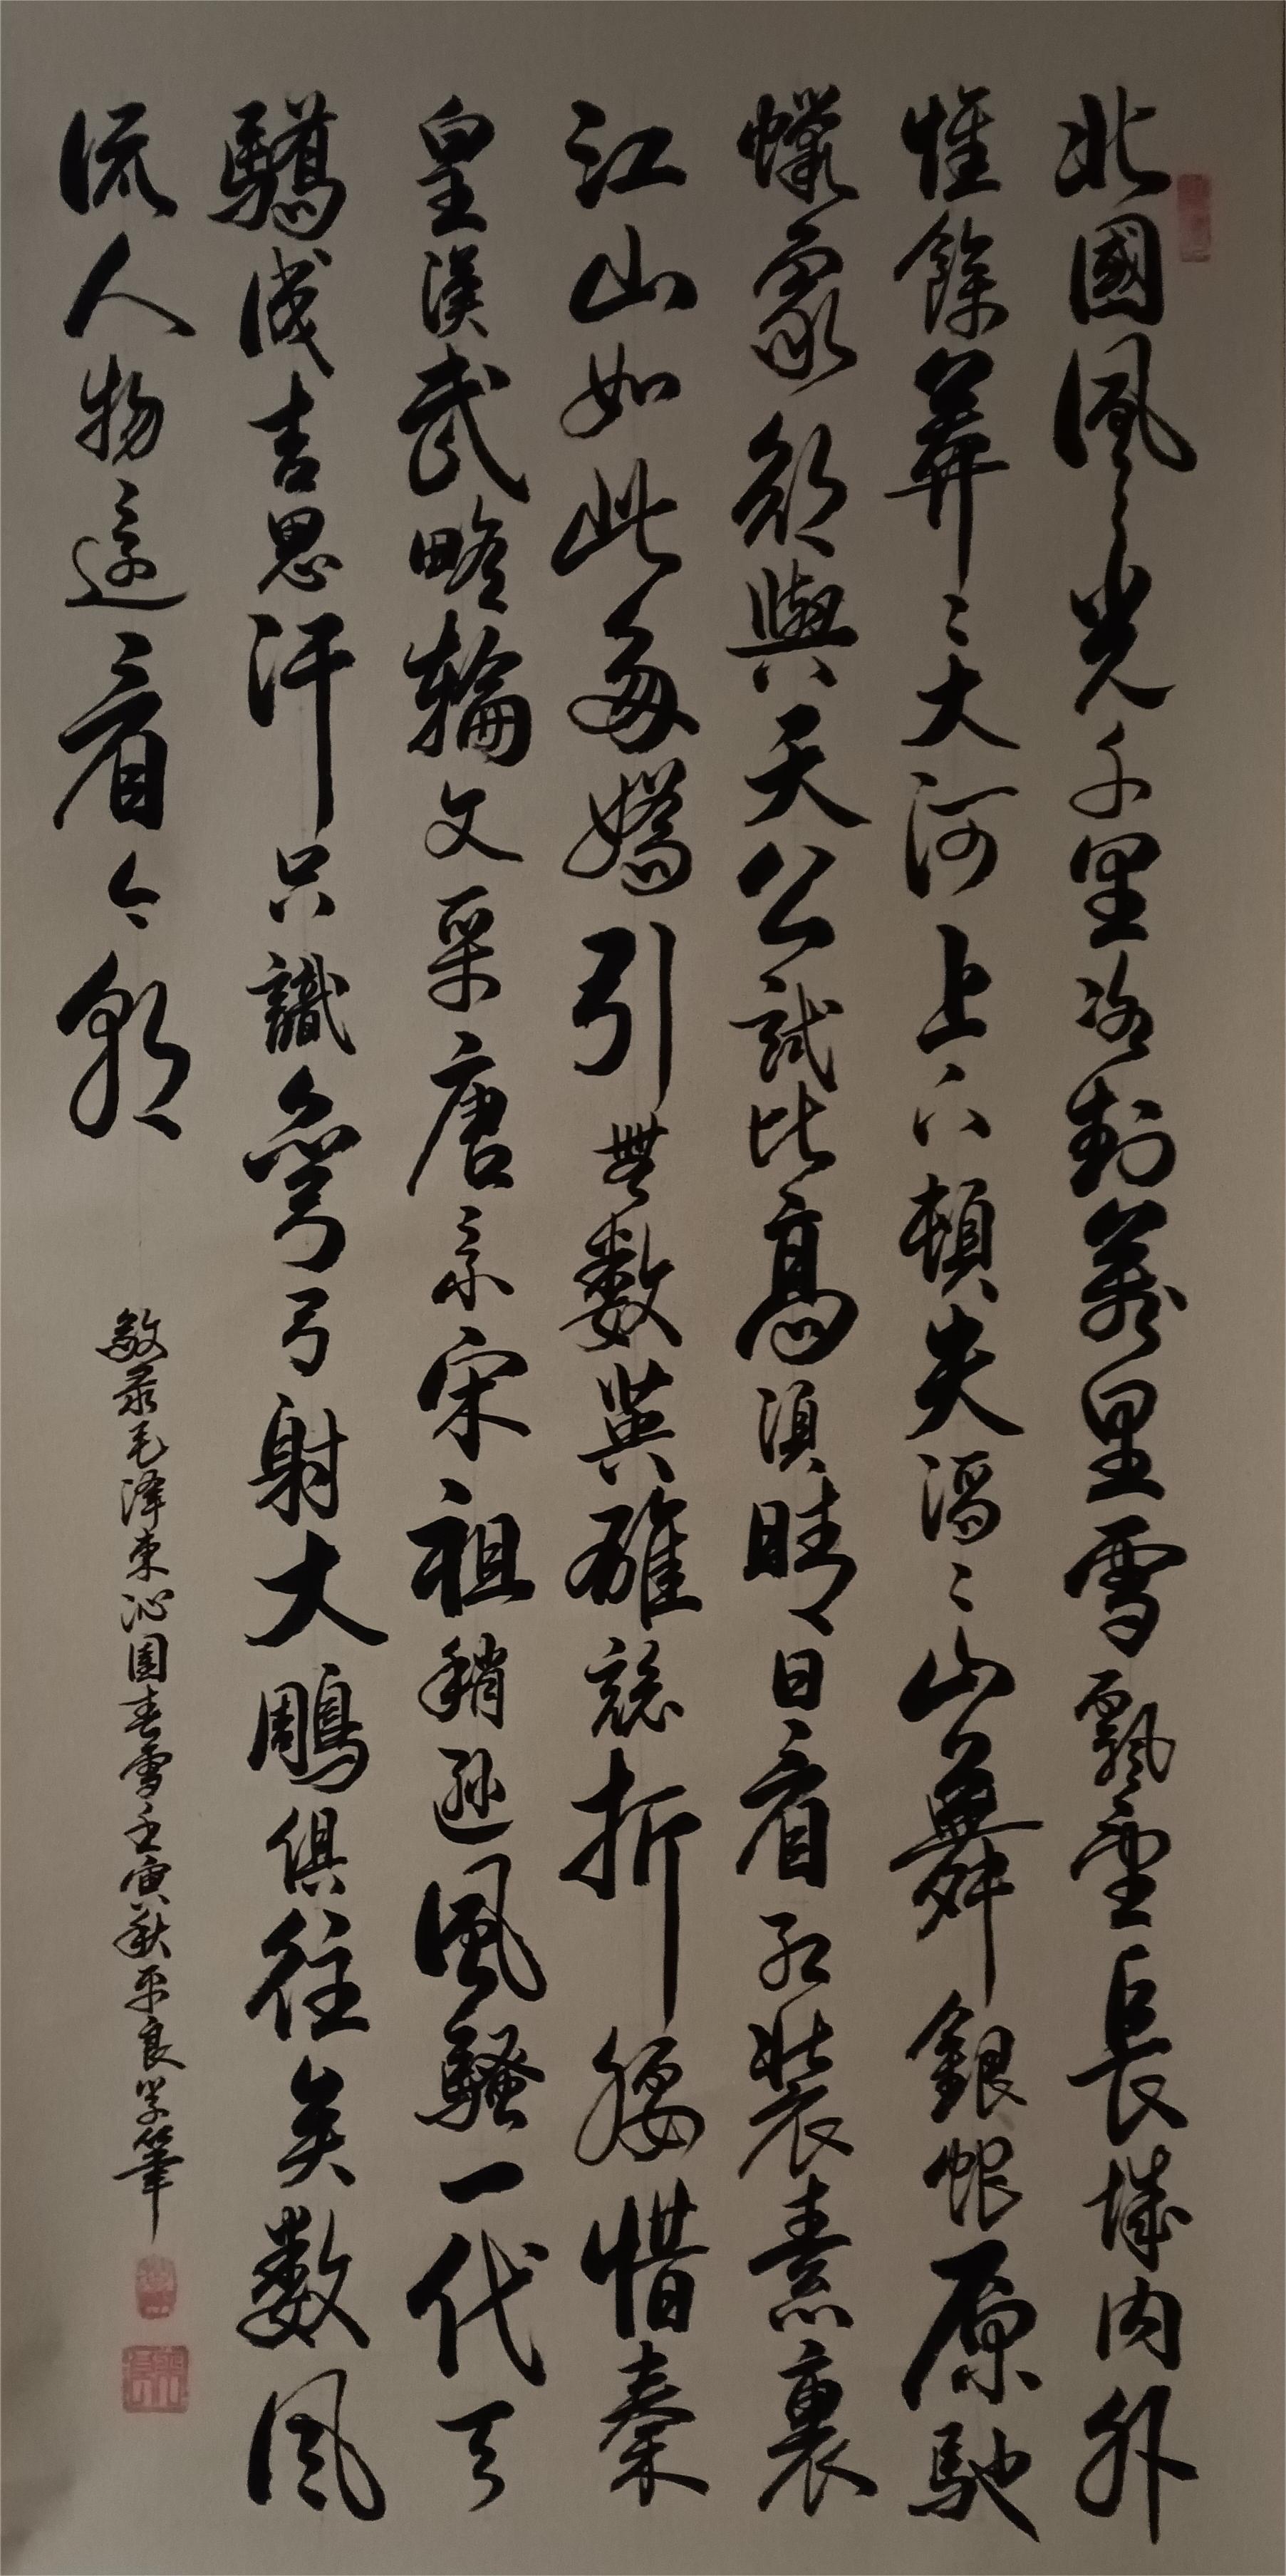 北國風光千里冰封萬里雪飄望長城内外
惟餘莽〻大河上下頓失滔〻山舞銀蛇原馳
蠟象欲與天公試比高須晴日看紅裝素裹
江山如此多嬌引無數英雄競折腰惜秦
皇漢武略輸文采唐宗宋祖稍遜風騷一代天
驕成吉思汗只識彎弓射大鵰俱往矣數風
流人物還看今朝
敬录毛澤東沁園春雪壬寅秋平良学筆